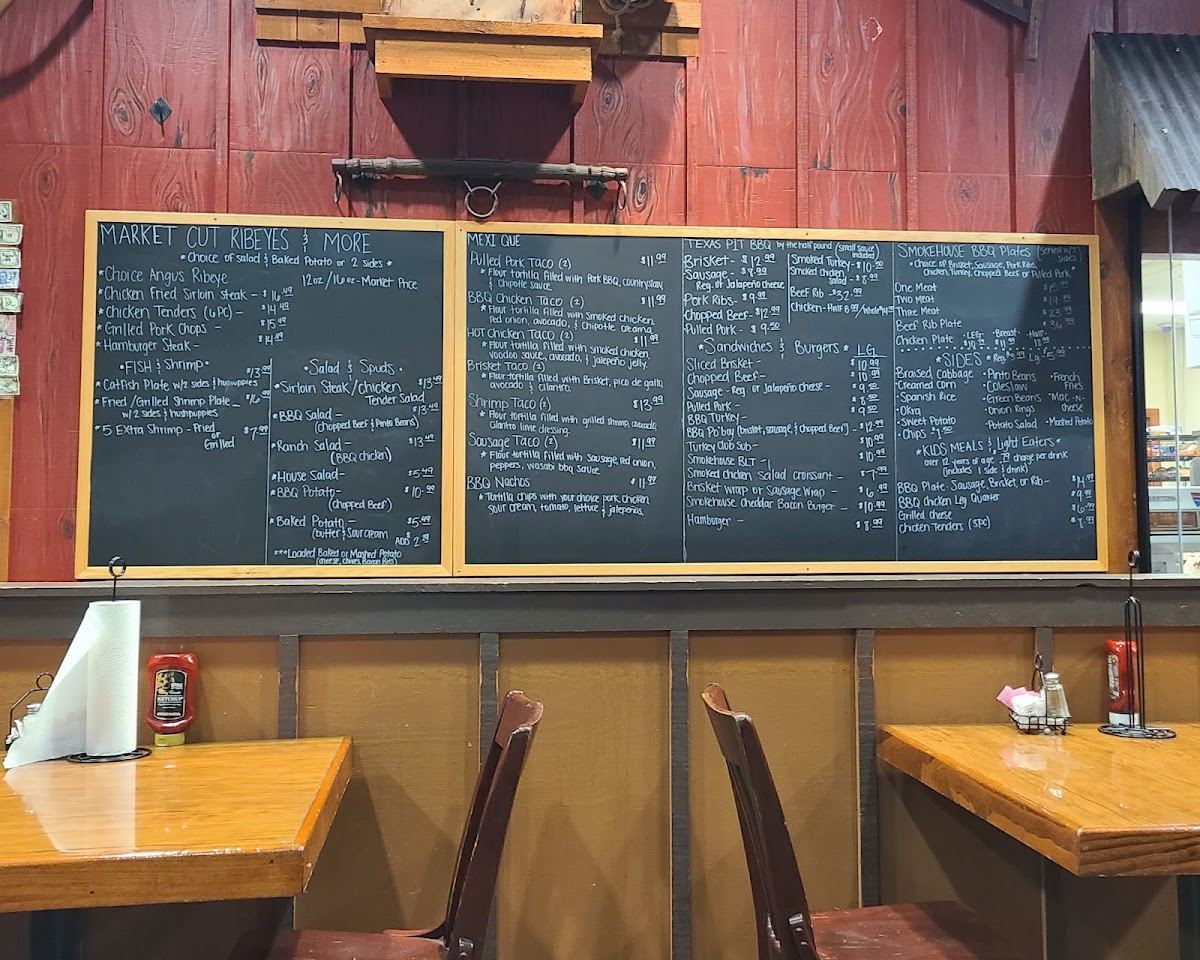 MARKET CUT RIBEYES & MORE
* Choice of salad & Baked Potato or 2 sides *
* Choice Angus Ribeye 12oz/16oz - Market Price
* Chicken Fried Sirloin steak - $16.49
* Chicken Tenders (6 PC) - $14.49
* Grilled Pork Chops - $15.49
* Hamburger Steak - $14.49
• FISH & Shrimp •
* Catfish Plate w/2 sides & hushpuppies $13.99
* Fried/Grilled Shrimp Plate - $16.99
w/2 sides & hushpuppies
* 5 Extra Shrimp - Fried $7.99
or
Grilled
• Salad & Spuds •
* Sirloin Steak/chicken $13.49
Tender Salad
* BBQ Salad - $13.49
(Chopped Beef & Pinto Beans)
* Ranch Salad - $13.49
(BBQ chicken)
* House Salad - $5.49
* BBQ Potato - $10.99
(Chopped Beef)
* Baked Potato - $5.49
(butter & Sour cream
***Loaded Baked or Mashed Potato ADD $2.59
(cheese, chives, Bacon Bits)
MEXI QUE
Pulled Pork Taco (2) $11.99
* Flour tortilla filled with Pork BBQ, countryslaw,
& Chipotle sauce.
BBQ Chicken Taco (2) $11.99
* Flour tortilla filled with smoked chicken,
red onion, avocado, & Chipotle creama
HOT Chicken Taco (2) $11.99
* Flour tortilla filled with smoked chicken,
voodoo sauce, avocado, & jalapeño jelly.
Brisket Taco (2)
* Flour tortilla filled with Brisket, pico de gallo,
avocado & cilantro.
Shrimp Taco (2) $13.99
* Flour tortilla filled with grilled shrimp, avocado,
Cilantro lime dressing.
Sausage Taco (2) $11.99
* Flour tortilla filled with Sausage, red onion,
peppers, wasabi bbq sauce
BBQ Nachos $11.99
* Tortilla chips with your choice pork, chicken,
sour cream, tomato, lettuce & jalapeños.
TEXAS PIT BBQ by the half pound (small sauce
included)
Brisket - $12.99
Sausage - $8.99
Reg. or Jalapeño cheese
Pork Ribs - $9.99
Chopped Beef - $12.99
Pulled Pork - $9.50
Smoked Turkey - $10.50
Smoked chicken
salad - $8.99
Beef Rib - $32.99
Chicken - Half 8.99/Whole
* Sandwiches & Burgers * LG
Sliced Brisket - $10.99
Chopped Beef - $10.99
Sausage - Reg. or Jalapeño cheese - $9.99
Pulled Pork - $8.99
BBQ Turkey - $9.50
BBQ Po'boy (brisket, sausage, & chopped Beef) - $12.99
Turkey Club Sub - $10.99
Smokehouse BLT - $10.99
Smoked chicken Salad croissant -
Brisket wrap or Sausage wrap - $7.99
Smokehouse Cheddar Bacon Burger - $10.99
Hamburger - $8.99
SMOKEHOUSE BBQ Plates (served w/2
sides)
* Choice of Brisket, Sausage, Pork Ribs,
Chicken, Turkey, Chopped Beef or Pulled Pork *
One Meat
Two Meat
Three Meat
Beef Rib Plate
Chicken Plate - Breast - Half -
* SIDES * Reg Lg $5.99
• Braised Cabbage • Pinto Beans • French
Fries
• Creamed Corn • Coleslaw
• Spanish Rice • Green Beans • Mac-N-
cheese
• Okra • Onion Rings
• Sweet Potato • Potato Salad • Mashed Potato
• Chips $1.50
* KIDS MEALS & Light Eaters *
over 12 years of age .79 charge per drink
(includes 1 side & drink)
BBQ Plate - Sausage, Brisket, or Rib -
BBQ Chicken Leg Quarter $9.99
Grilled cheese $6.99
Chicken Tenders (3pc) $8.99
KETCHUP